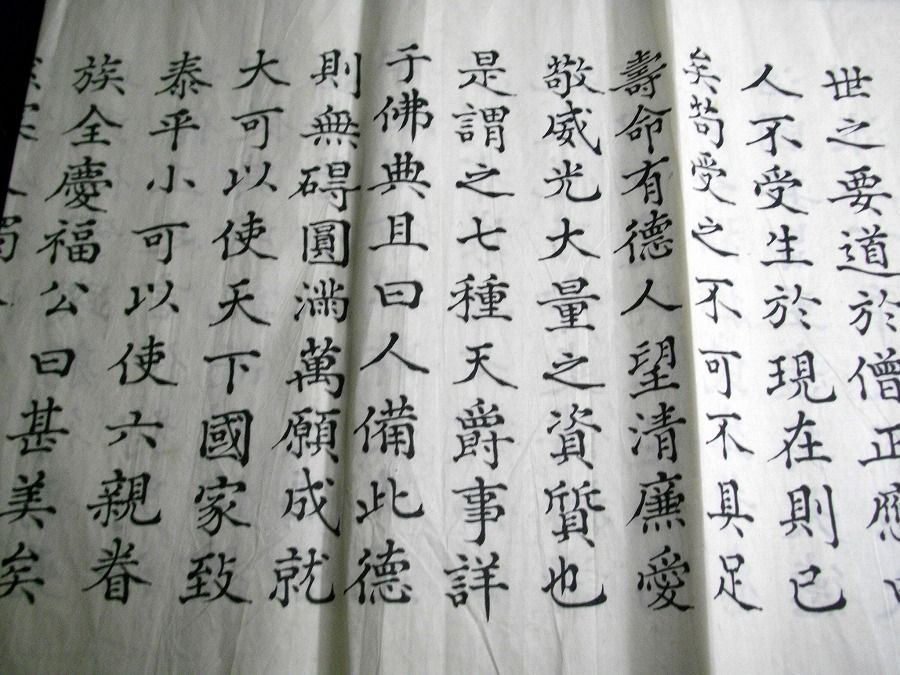 世之要道於僧正應曰
人不受生於現在則已
矣苟受之不可不具足
壽命有德人望清廉愛
敬威光大量之資質也
是謂之七種天爵事詳
于佛典且曰人備此德
則無碍圓滿萬願成就
大可以使天下國家致
泰平小可以使六親眷
族全慶福公曰甚美矣